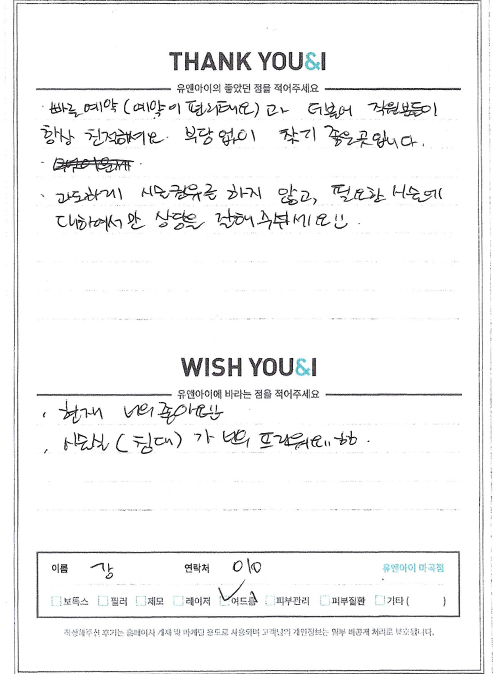 THANK YOU&I
유앤아이의 좋았던 점을 적어주세요
· 빠른예약(예약이 편리해요)과 더불어 직원분들이
항상 친절해서요. 부담없이 찾기 좋은곳입니다.
· 과도하게 시술권유를 하지 않고, 필요한 시술에
대하여서만 상담을 잘해주세요!!.
WISH YOU&I
유앤아이에 바라는 점을 적어주세요
· 현재 너무좋아요!!
· 시술실(침대)가 너무
이름 강 연락처 010 유앤아이 마곡점
보톡스 필러 제모 레이저 여드름 피부관리 피부질환 기타 ( )
작성해주신 후기는 홈페이지 게재 및 마케팅 용도로 사용되며 고객님의 개인정보는 일부 비공개 처리로 보호됩니다.